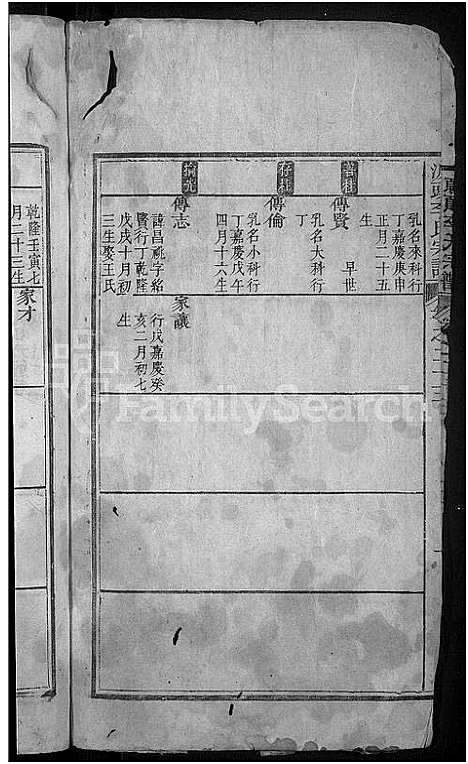 乳名來科行
丁嘉慶庚申
正月二十五
生
著桂
傳賢 早世
乳名大科行
丁
存桂
傳倫
乳名小科行
丁嘉慶戊午
四月十六生
傳志
諱昌祧字紹
賢行丁乾隆
戊戌十月初
三生娶王氏
家讓
行戊嘉慶癸
亥二月初七
生
乾隆壬寅七
月二十三生
家才
FamilySearch